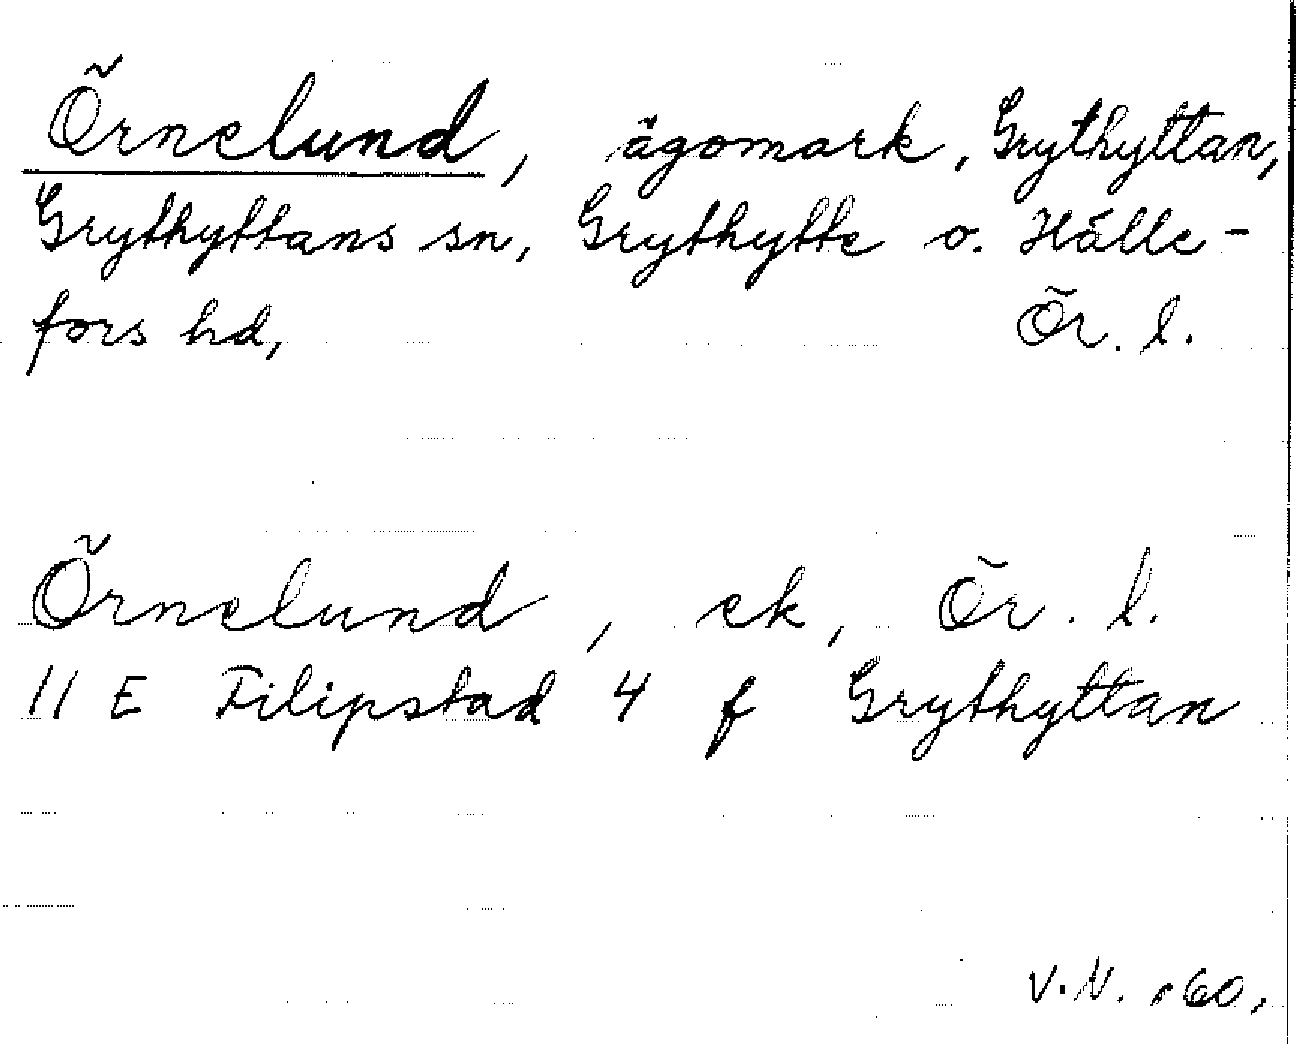 Örnelund, ägomark, Grythyttan,
Grythyttans sn, Grythytte o. Hälle-
fors hd, Ör. l.
Örnelund, ek, Ör. l.
11 E Filipstad 4 f Grythyttan
V.N. -60.